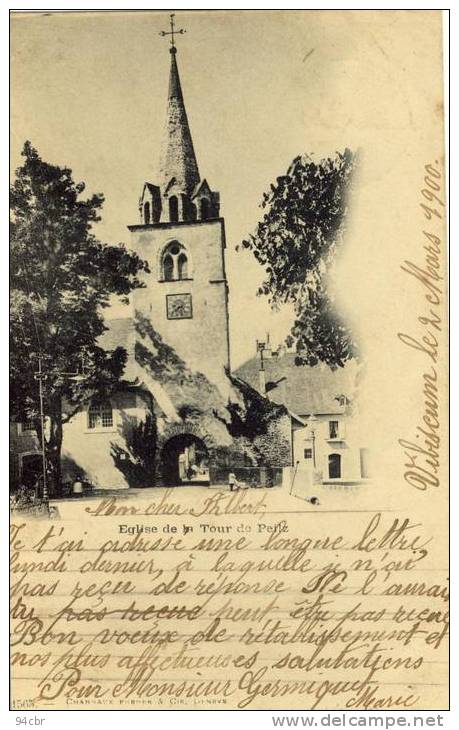 Vibiscum le 2 Mars 1900.
Mon cher Albert
Eglise de la Tour de Peilz
Je t'ai adressé une longue lettre
lundi dernier, à laquelle je n'ai
pas reçu de réponse Ne l'aurais
tu pas recue peut être pas reçue
Bon voeux de rétablissement et
nos plus affectueuses salutations
Pour Monsieur Germiquet
Marie
1565. — CHARNAUX FRÈRES & CIE, GENÈVE
94cbr
www.delcampe.net